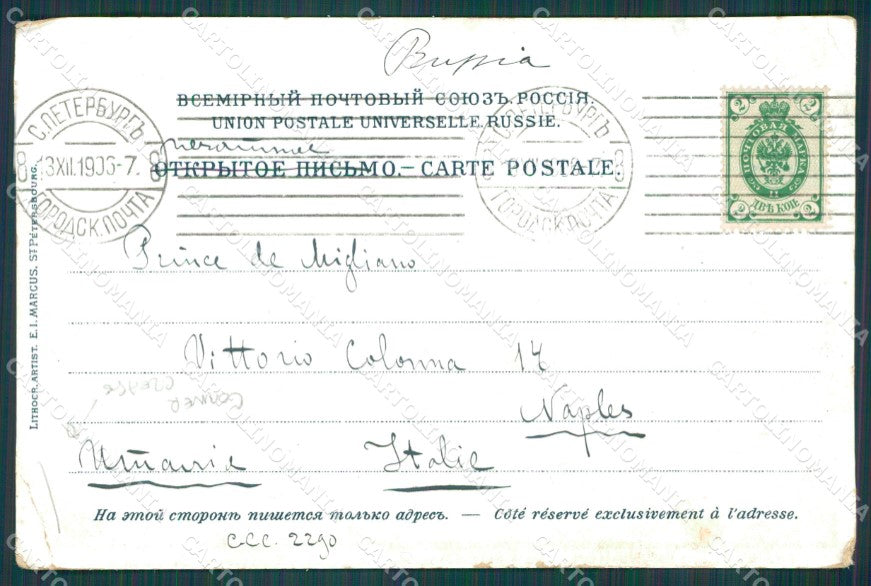 Russia
ВСЕМІРНЫЙ ПОЧТОВЫЙ СОЮЗЪ. РОССІЯ.
UNION POSTALE UNIVERSELLE. RUSSIE.
ОТКРЫТОЕ ПИСЬМО. — CARTE POSTALE.
С.ПЕТЕРБУРГЪ
ГОРОДСК.ПОЧТА
8
8
С.ПЕТЕРБУРГЪ
ГОРОДСК.ПОЧТА
2 2
ПОЧТОВАЯ МАРКА
ДВѢ КОП.
2 2
Prince de Migliano
Vittorio Colonna 14
Naples
Italie
CORNER
CREASE
LITHOGR. ARTIST. E. I. MARCUS. ST PÉTERSBOURG.
На этой сторонѣ пишется только адресъ. — Côté réservé exclusivement à l'adresse.
C.C.C. 2290
CARTOLINOMANIA